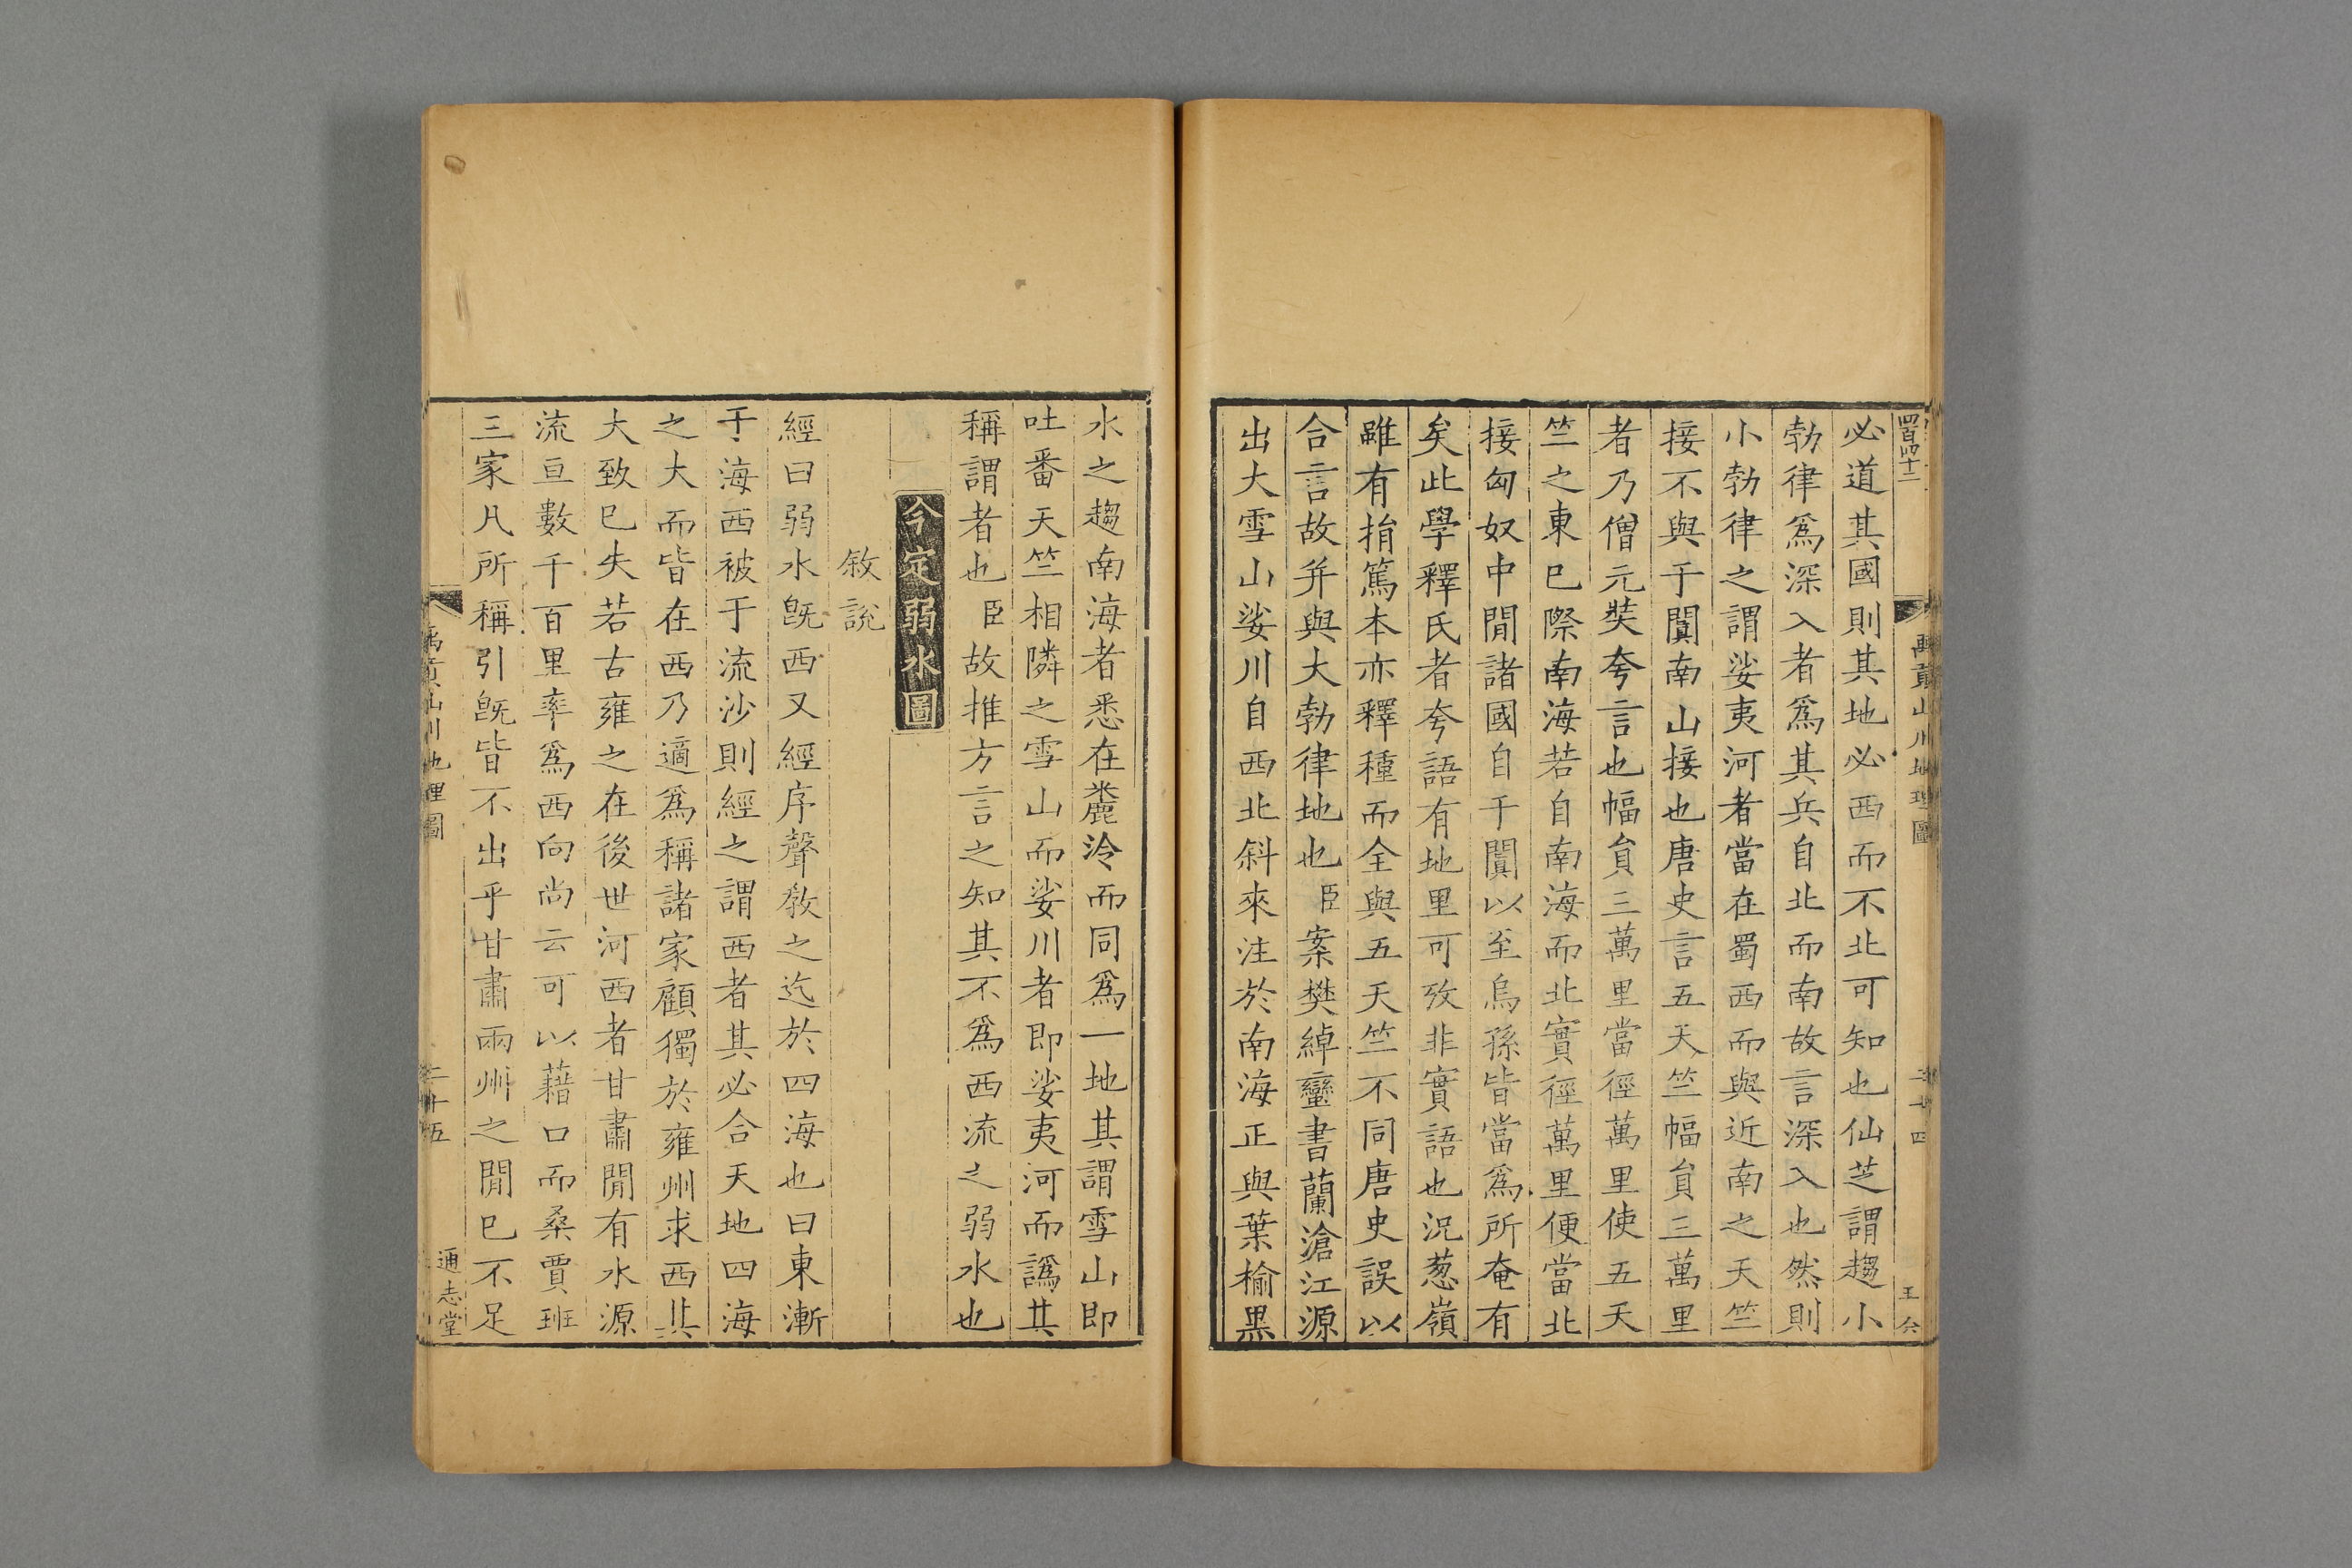 四百四十二
禹貢山川地理圖
二十四
王六
必道其國則其地必西而不北可知也仙芝謂趨小
勃律爲深入者爲其兵自北而南故言深入也然則
小勃律之謂娑夷河者當在蜀西而與近南之天竺
接不與于闐南山接也唐史言五天竺幅員三萬里
者乃僧元奘夸言也幅員三萬里當徑萬里使五天
竺之東巳際南海若自南海而北實徑萬里便當北
接匈奴中閒諸國自于闐以至烏孫皆當爲所奄有
矣此學釋氏者夸語有地里可攷非實語也況葱嶺
雖有捐篤本亦釋種而全與五天竺不同唐史誤以
合言故并與大勃律地也臣案樊綽蠻書蘭滄江源
出大雪山娑川自西北斜來注於南海正與葉榆黑
水之趨南海者悉在麊泠而同爲一地其謂雪山即
吐番天竺相隣之雪山而娑川者即娑夷河而譌其
稱謂者也臣故推方言之知其不爲西流之弱水也
今定弱水圖
敘說
經曰弱水旣西又經序聲敎之迄於四海也曰東漸
于海西被于流沙則經之謂西者其必合天地四海
之大而皆在西乃適爲稱諸家顧獨於雍州求西其
大致巳失若古雍之在後世河西者甘肅閒有水源
流亘數千百里率爲西向尚云可以藉口而桑賈班
三家凡所稱引旣皆不出乎甘肅兩州之閒巳不足
禹貢山川地理圖
二十五
通志堂